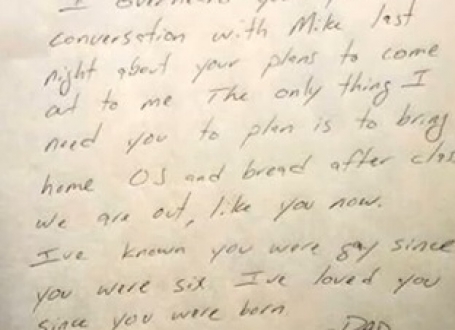 I overheard your
conversation with Mike last
night about your plans to come
out to me The only thing I
need you to plan is to bring
home OJ and bread after class
we are out, like you now.
I've known you were gay since
you were six I've loved you
since you were born
-DAD